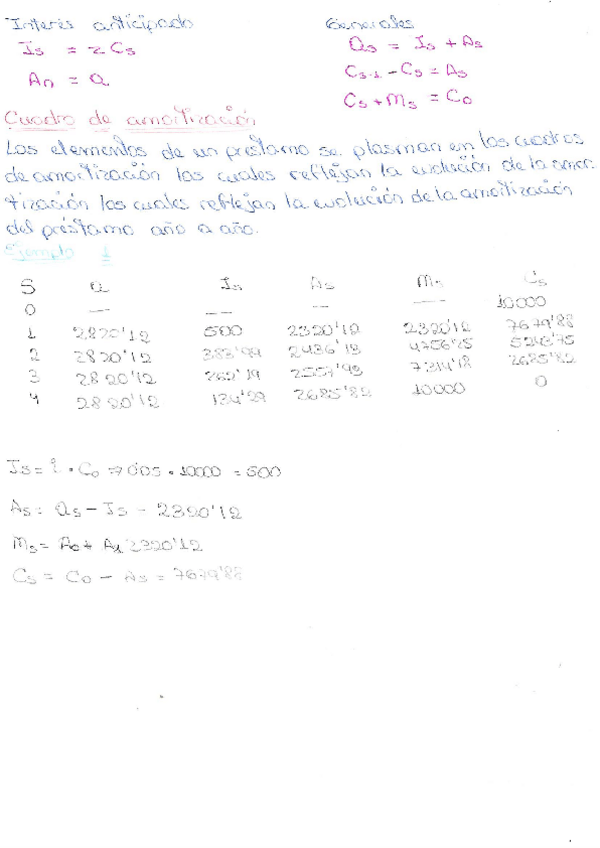 Interés anticipado
Is = z Cs
An = a
Generales
as = Is + As
Cs-1 - Cs = As
Cs + Ms = Co
Cuadro de amortización
Los elementos de un préstamo se plasman en los cuadros
de amortización los cuales reflejan la evolución de la amor
tización los cuales reflejan la evolución de la amortización
del préstamo año a año.
Ejemplo 1
S a Is As Ms Cs
0 — — — — 10000
1 2820'12 500 2320'12 2320'12 7679'88
2 2820'12 383'99 2436'13 4756'25 5243'75
3 2820'12 262'19 2557'93 7314'18 2685'82
4 2820'12 134'29 2685'82 10000 0
Is = i · Co => 0'05 · 10000 = 500
As = as - Is - 2320'12
Ms = Ao + A1 2320'12
Cs = Co - As = 7679'88